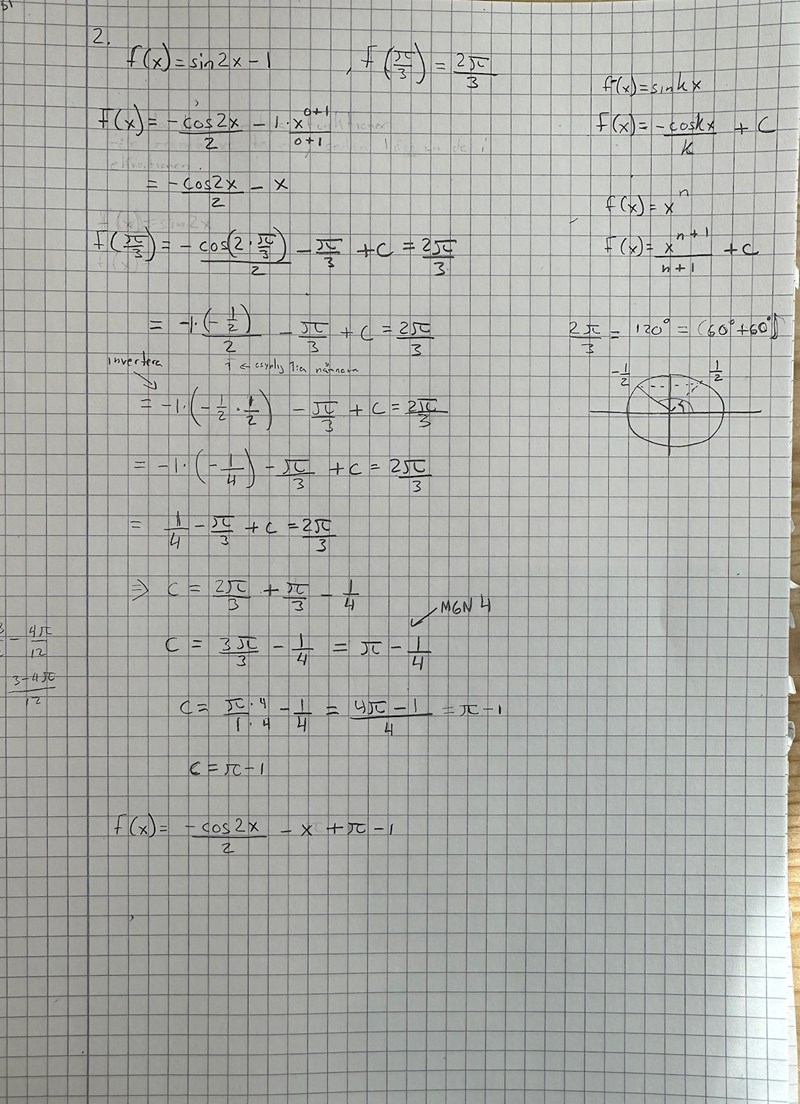 2.
f(x) = sin2x - 1 , F(π/3) = 2π/3
F(x) = -cos2x/2 - 1 · x^(0+1)/(0+1)
= -cos2x/2 - x
F(π/3) = -cos(2·π/3)/2 - π/3 + C = 2π/3
= -1·(-1/2)/2 - π/3 + C = 2π/3
invertera
= -1·(-1/2 · 1/2) - π/3 + C = 2π/3
= -1·(-1/4) - π/3 + C = 2π/3
= 1/4 - π/3 + C = 2π/3
⇒ C = 2π/3 + π/3 - 1/4
MGN 4
C = 3π/3 - 1/4 = π - 1/4
C = π·4/1·4 - 1/4 = (4π - 1)/4 = π - 1
C = π - 1
F(x) = -cos2x/2 - x + π - 1
f(x) = sinkx
F(x) = -coskx/k + C
f(x) = x^n
F(x) = x^(n+1)/(n+1) + C
2π/3 = 120° = (60° + 60°)
-1/2 1/2
- 4π/12
3-4π/12